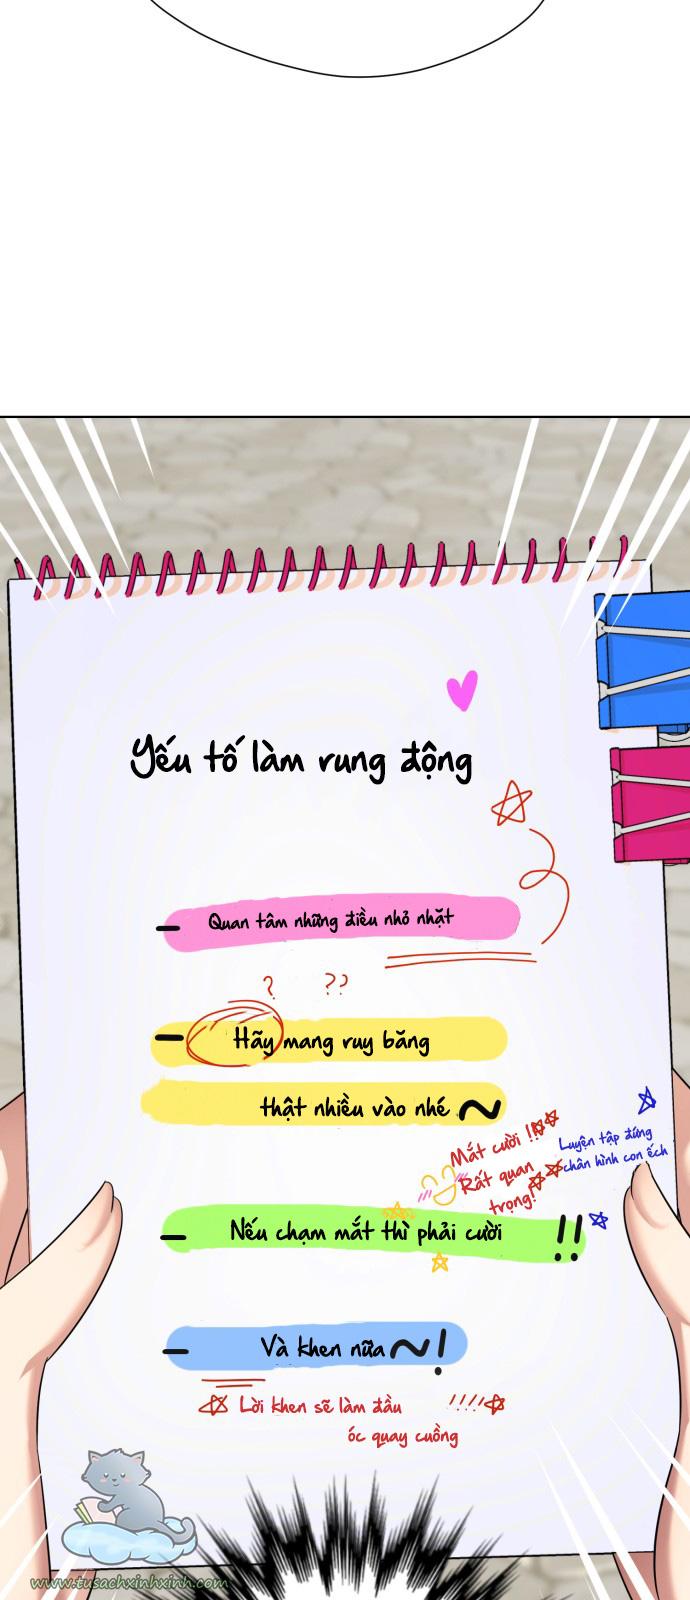 Yếu tố làm rung động
- Quan tâm những điều nhỏ nhặt
? ??
- Hãy mang ruy băng
thật nhiều vào nhé ~
Mắt cười !!
Rất quan
trọng!
Luyện tập đứng
chân hình con ếch
- Nếu chạm mắt thì phải cười !!
- Và khen nữa ~!
Lời khen sẽ làm đầu !!!!
óc quay cuồng
www.tusachxinhxinh.com